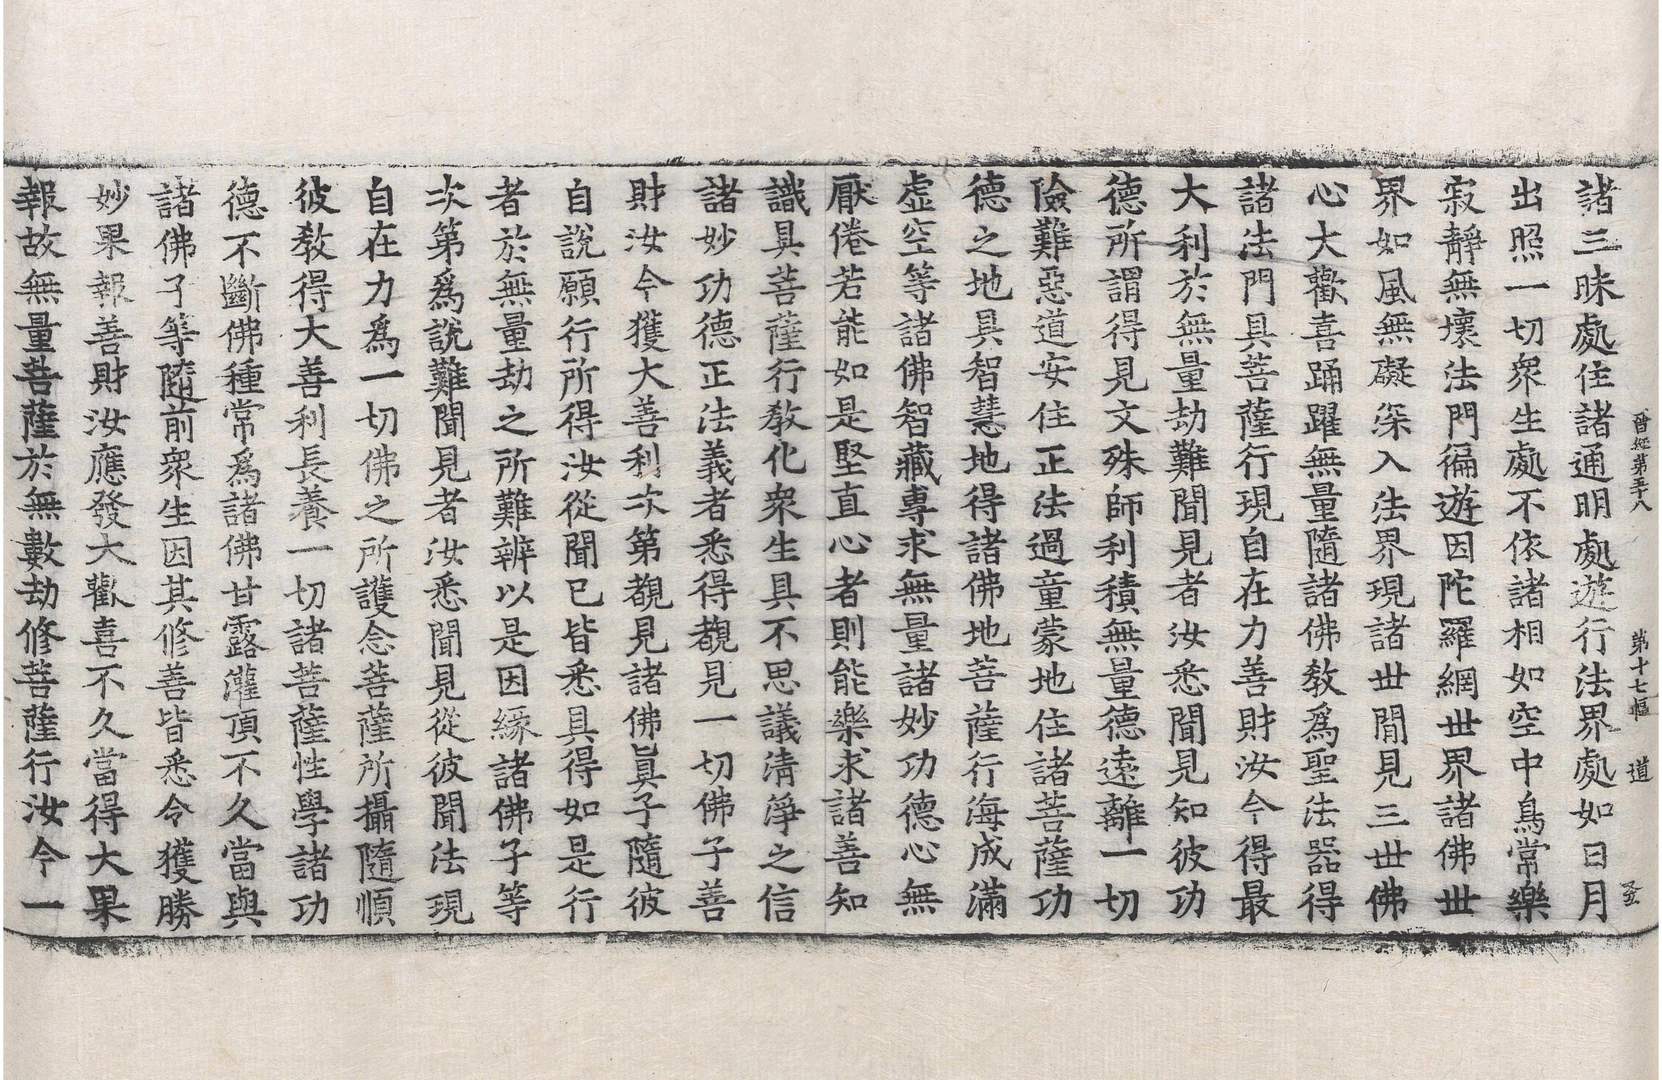 晉經第五十八　第十七幅　道
諸三昧處住諸通明處遊行法界處如日月
出照一切衆生處不依諸相如空中鳥常樂
寂靜無壞法門徧遊因陀羅網世界諸佛世
界如風無礙深入法界現諸世閒見三世佛
心大歡喜踊躍無量隨諸佛教爲聖法器得
諸法門具菩薩行現自在力善財汝今得最
大利於無量劫難聞見者汝悉聞見知彼功
德所謂得見文殊師利積無量德遠離一切
險難惡道安住正法過童蒙地住諸菩薩功
德之地具智慧地得諸佛地菩薩行海成滿
虛空等諸佛智藏專求無量諸妙功德心無
厭倦若能如是堅直心者則能樂求諸善知
識具菩薩行教化衆生具不思議清淨之信
諸妙功德正法義者悉得覩見一切佛子善
財汝今獲大善利次第覩見諸佛眞子隨彼
自說願行所得汝從聞已皆悉具得如是行
者於無量劫之所難辨以是因緣諸佛子等
次第爲說難聞見者汝悉聞見從彼聞法現
自在力爲一切佛之所護念菩薩所攝隨順
彼教得大善利長養一切諸菩薩性學諸功
德不斷佛種常爲諸佛甘露灌頂不久當與
諸佛子等隨前衆生因其修善皆悉令獲勝
妙果報善財汝應發大歡喜不久當得大果
報故無量菩薩於無數劫修菩薩行汝今一